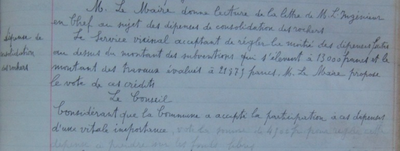 M. Le Maire donne lecture de la lettre de M. L'Ingénieur
en Chef au sujet des dépenses de consolidation des rochers
dépenses de
consolidation
des rochers
Le Service vicinal acceptant de régler la moitié des dépenses faites
au dessus du montant des subventions qui s'élevent à 13000 francs et le
montant des travaux évalués à francs. M. Le Maire propose
le vote de ces crédits
Le Conseil
Considérant que la Commune a accepté la participation à ces dépenses
d'une vitale importance,